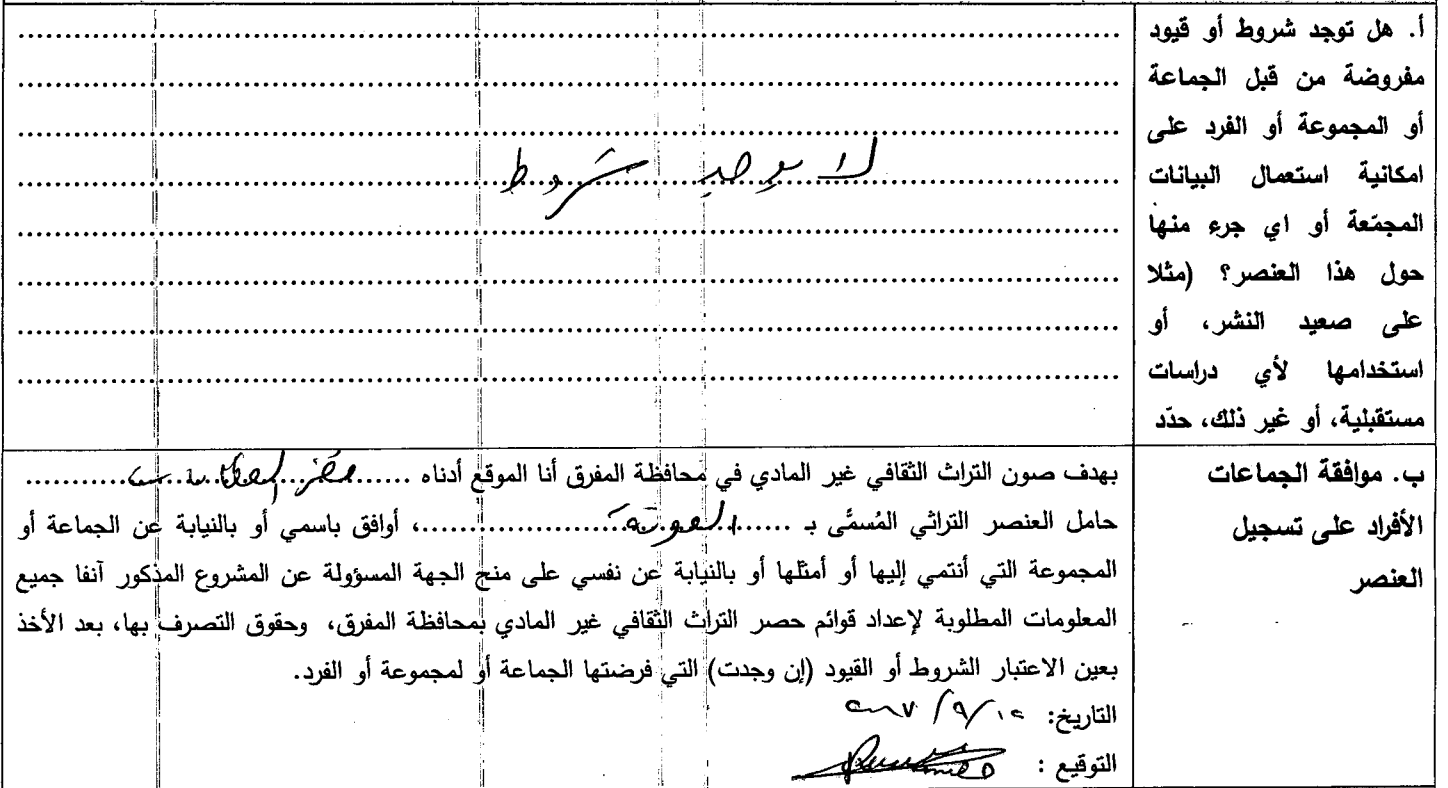 أ. هل توجد شروط أو قيود
مفروضة من قبل الجماعة
أو المجموعة أو الفرد على
امكانية استعمال البيانات
المجمّعة أو اي جرء منها
حول هذا العنصر؟ (مثلا
على صعيد النشر، أو
استخدامها لأي دراسات
مستقبلية، أو غير ذلك، حدّد
لا يوجد شروط
ب. موافقة الجماعات
الأفراد على تسجيل
العنصر
بهدف صون التراث الثقافي غير المادي في محافظة المفرق أنا الموقع أدناه
حامل العنصر التراثي المُسمَّى بـ ......، أوافق باسمي أو بالنيابة عن الجماعة أو
المجموعة التي أنتمي إليها أو أمثلها أو بالنيابة عن نفسي على منح الجهة المسؤولة عن المشروع المذكور آنفا جميع
المعلومات المطلوبة لإعداد قوائم حصر التراث الثقافي غير المادي بمحافظة المفرق، وحقوق التصرف بها، بعد الأخذ
بعين الاعتبار الشروط أو القيود (إن وجدت) التي فرضتها الجماعة أو لمجموعة أو الفرد.
التاريخ:
التوقيع :